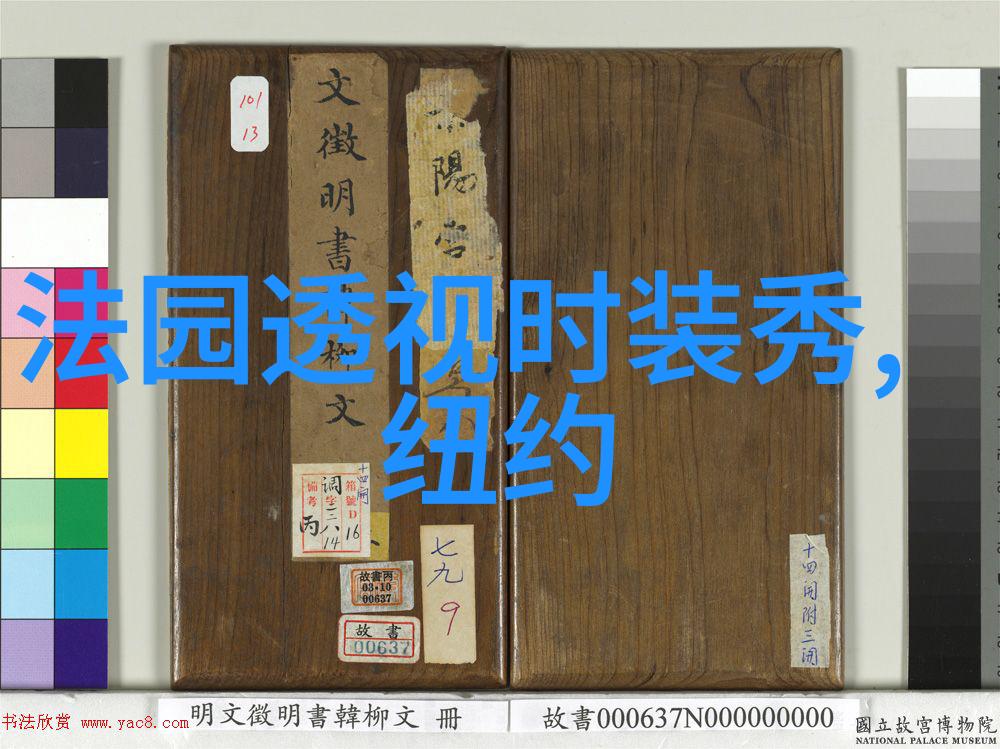 法园透视时装秀,
纽约
101
13
文徵明書韓柳文
陽宮
十四開
箱號D16
调字三八14
備考
丙
故書丙
03·10
00637
故書
00637
七九
9
十四開附三開
明文徵明書韓柳文 冊
故書000637N000000000
國立故宮博物院
NATIONAL PALACE MUSEUM
书法欣赏 www.yac8.com